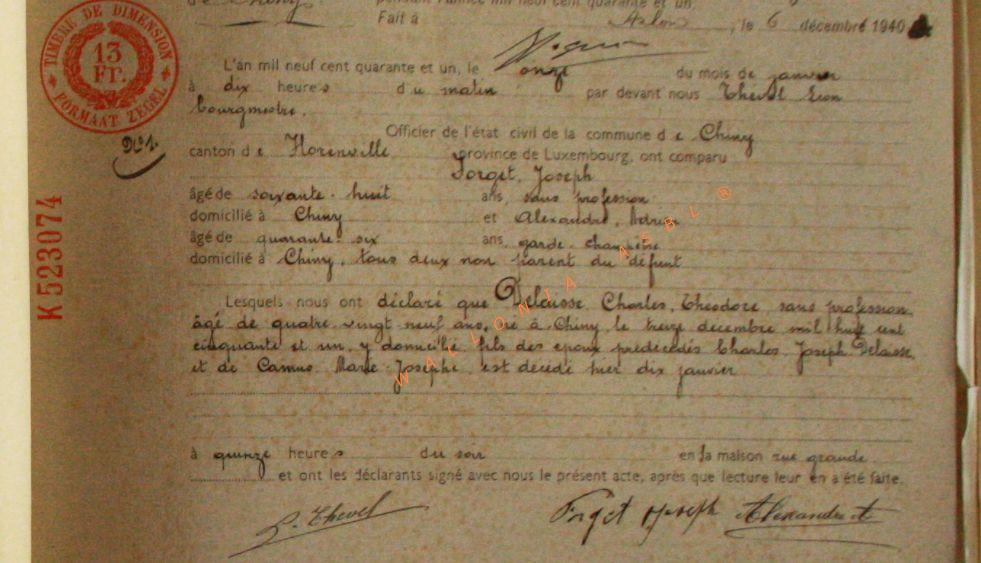 pendant l'année mil neuf cent quarante et un.
Fait à Arlon, le 6 décembre 1940
TIMBRE DE DIMENSION
13
FR.
FORMAAT ZEGEL
L'an mil neuf cent quarante et un, le onze du mois de janvier
à dix heures du matin par devant nous Thevel Léon
bourgmestre.
Officier de l'état civil de la commune de Chiny
No 1.
canton de Florenville province de Luxembourg, ont comparu
Forget, Joseph
âgé de soixante-huit ans, sans profession
domicilié à Chiny et Alexandre, Adrien
âgé de quarante-six ans, garde-champêtre
domicilié à Chiny, tous deux non parent du défunt
K 523074
Lesquels nous ont déclaré que Delausse Charles, Théodore, sans profession
âgé de quatre vingt neuf ans, né à Chiny le treize décembre mil huit cent
cinquante et un, y domicilié, fils des époux prédécédés Charles, Joseph Delausse
et de Camus Marie-Josèphe, est décédé hier dix janvier
à quinze heures du soir en sa maison rue grande
et ont les déclarants signé avec nous le présent acte, après que lecture leur en a été faite.
L. Thevel Forget Joseph Alexandre A
WALLONIA ASBL ®